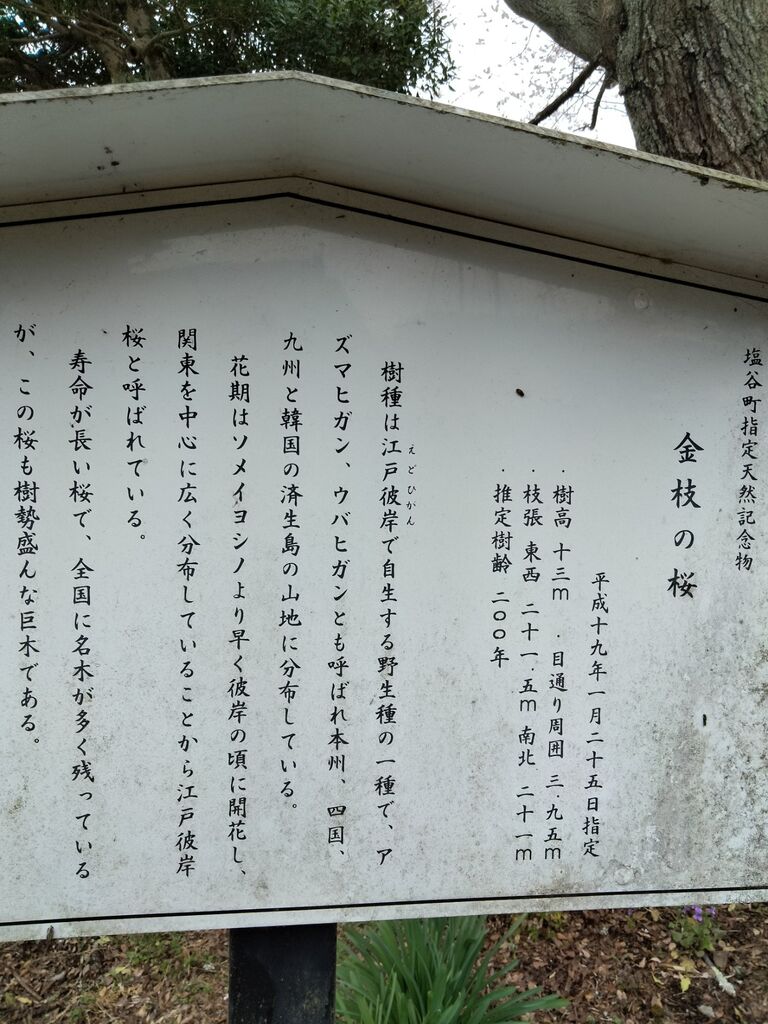 塩谷町指定天然記念物
金枝の桜
平成十九年一月二十五日指定
・樹高 十三m ・目通り周囲 三・九五m
・枝張 東西 二十一・五m 南北 二十一m
・推定樹齢 二〇〇年
えどひがん
樹種は江戸彼岸で自生する野生種の一種で、ア
ズマヒガン、ウバヒガンとも呼ばれ本州、四国、
九州と韓国の済生島の山地に分布している。
花期はソメイヨシノより早く彼岸の頃に開花し、
関東を中心に広く分布していることから江戸彼岸
桜と呼ばれている。
寿命が長い桜で、全国に名木が多く残っている
が、この桜も樹勢盛んな巨木である。